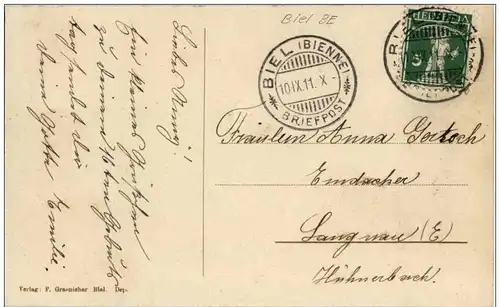 Biel BE
BIEL (BIENNE)
10.IX.11.X-
BRIEFPOST
HELVETIA
5
Liebes Nenny!
Ein kleines Grüsschen
zu deinem 16ten Geburts-
tag sendet Dir
deine Gotte Emilie.
Fräulein Anna Gertsch
Emdacher
Langnau (E)
Hühnerbach.
Verlag: F. Graenicher Biel. Dep.